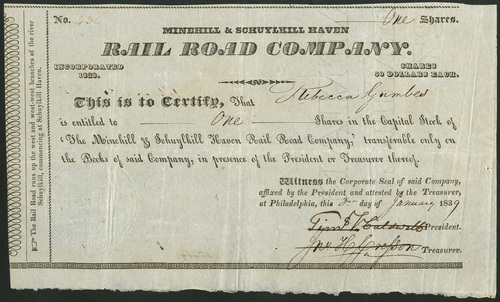 No.
One Shares.
MINEHILL & SCHUYLKILL HAVEN
RAIL ROAD COMPANY.
INCORPORATED
1828.
SHARES
50 DOLLARS EACH.
This is to Certify, That Rebecca Gumbes
is entitled to One Shares in the Capital Stock of
'The Minehill & Schuylkill Haven Rail Road Company,' transferable only on
the Books of said Company, in presence of the President or Treasurer thereof.
Witness the Corporate Seal of said Company,
affixed by the President and attested by the Treasurer,
at Philadelphia, this day of January 1839
President.
Treasurer.
The Rail Road runs up the west and west-west branches of the river
Schuylkill, commencing at Schuylkill Haven.